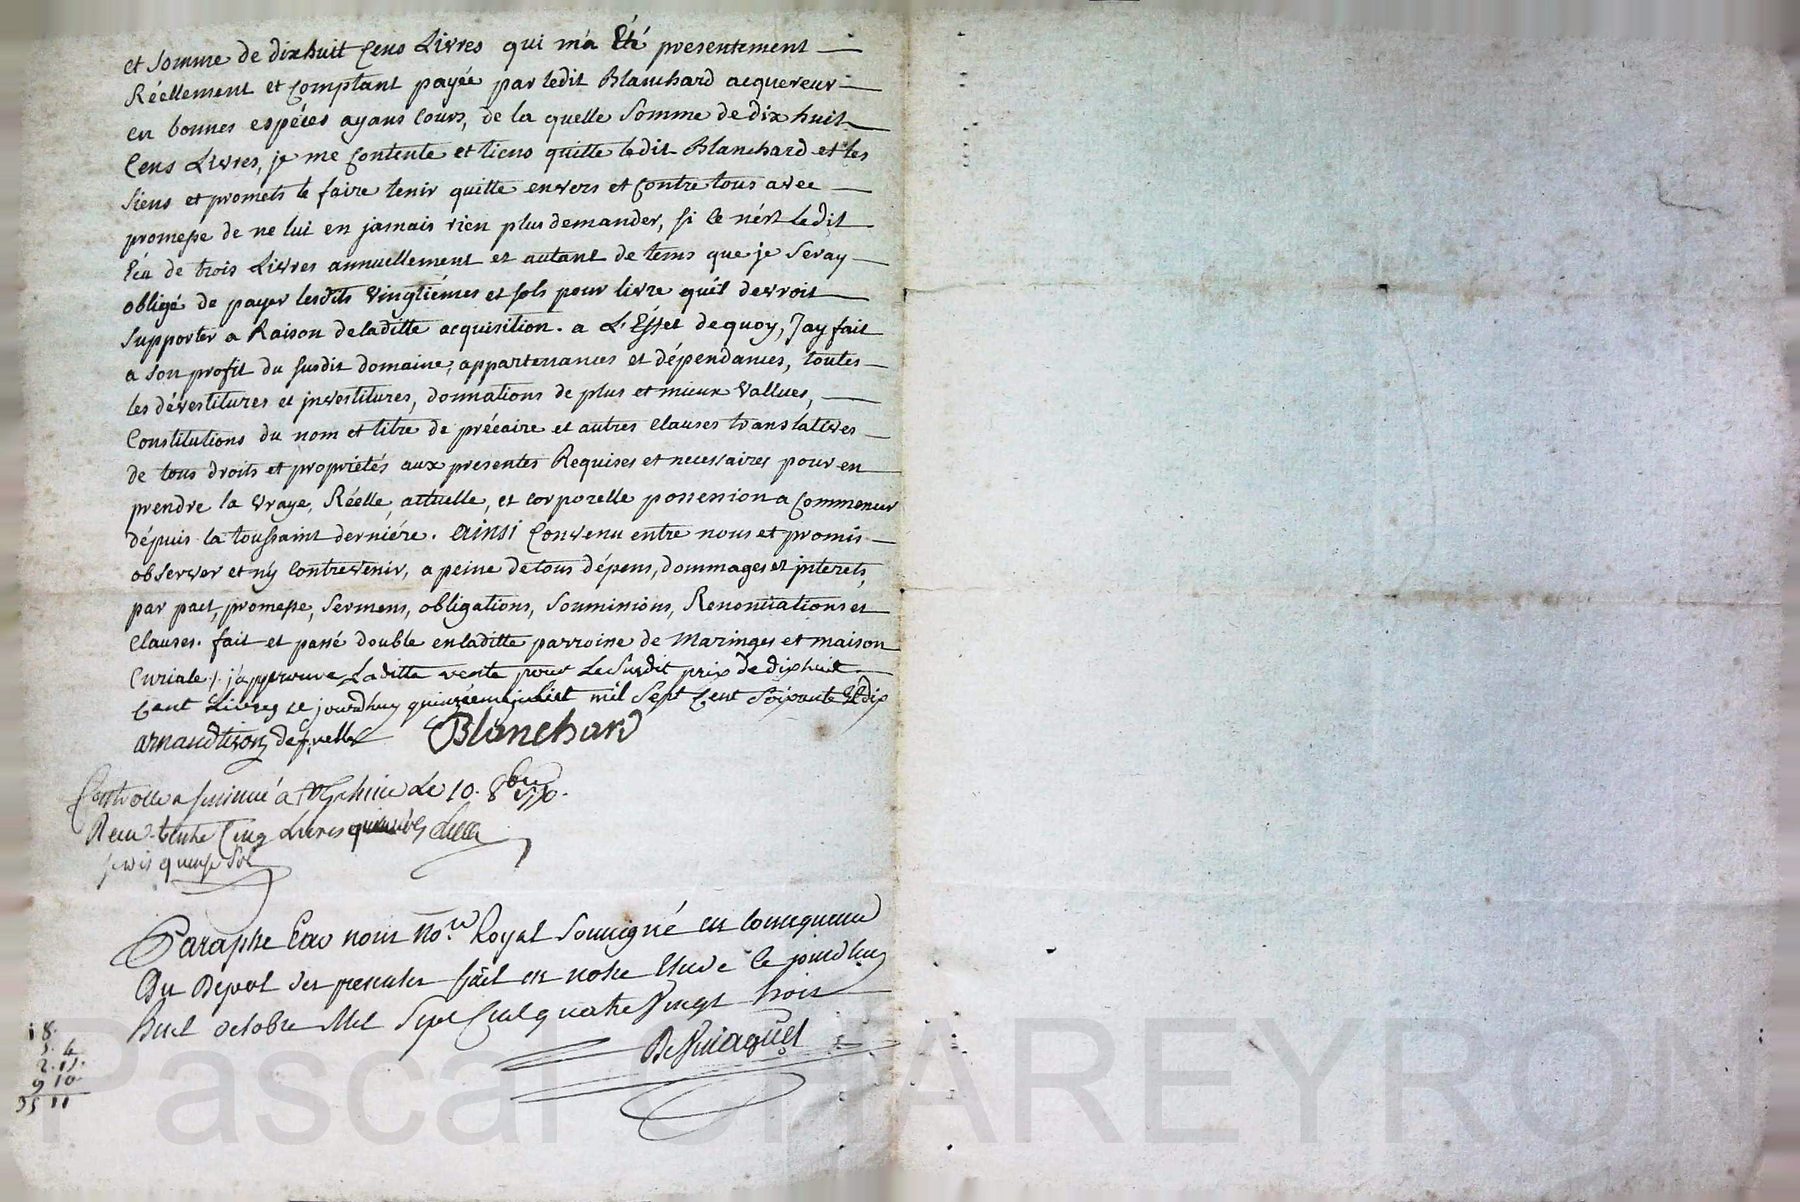 et Somme de dix huit Cens Livres qui m'a Eté presentement
Réellement et Comptant payée par ledit Blanchard acquereur
en bonnes espéces ayans Cours, de la quelle Somme de dix huit
Cens Livres, je me Contente et tiens quitte ledit Blanchard et les
Siens et promets le faire tenir quitte envers et Contre tous avec
promesse de ne lui en jamais rien plus demander, si Ce n'ést ledit
Ecu de trois Livres annuellement et autant de tems que je Seray
obligé de payer lesdits Vingtiémes et sols pour livre qu'il devroit
Supporter a Raison de laditte acquisition. a L'Effet de quoy, J'ay fait
a Son profit du susdit domaine, appartenances et dépendances, toutes
les dévestitures et jnvestitures, donnations de plus et mieux Vallues,
Constitutions du nom et titre de précaire et autres Clauses translatives
de tous droits et propriétés aux presentes Requises et necessaires pour en
prendre la Vraye, Réelle, actuelle, et corporelle possession a Commencer
dépuis la toussaint derniére. ainsi Convenu entre nous et promis
observer et n'y Contrevenir, a peine de tous dépens, dommages et jnterets,
par pact, promesse, Sermens, obligations, Soumissions, Renontiations et
Clauses. fait et passé double en laditte parroisse de Maringes et maison
Curiale /. j'approuve Laditte vente pour Le Susdit prix de dix huit
Cent Livres ce jourd'huy quinzéeme juliet mil Sept Cent Soixante Et dix
Blanchard
Controllé a insinué á Le 10. 8bre 1770.
Recu trente Cinq Livres
quinze Sol
Paraphé Par nous Nore Royal Soussigné en Consequence
Du Depot des presentes fait en notre Etude Ce jourd'huy
huit octobre Mil Sept Cent quatre Vingt trois
18.
5. 4
2. 17.
9 10
35 11
Pascal CHAREYRON